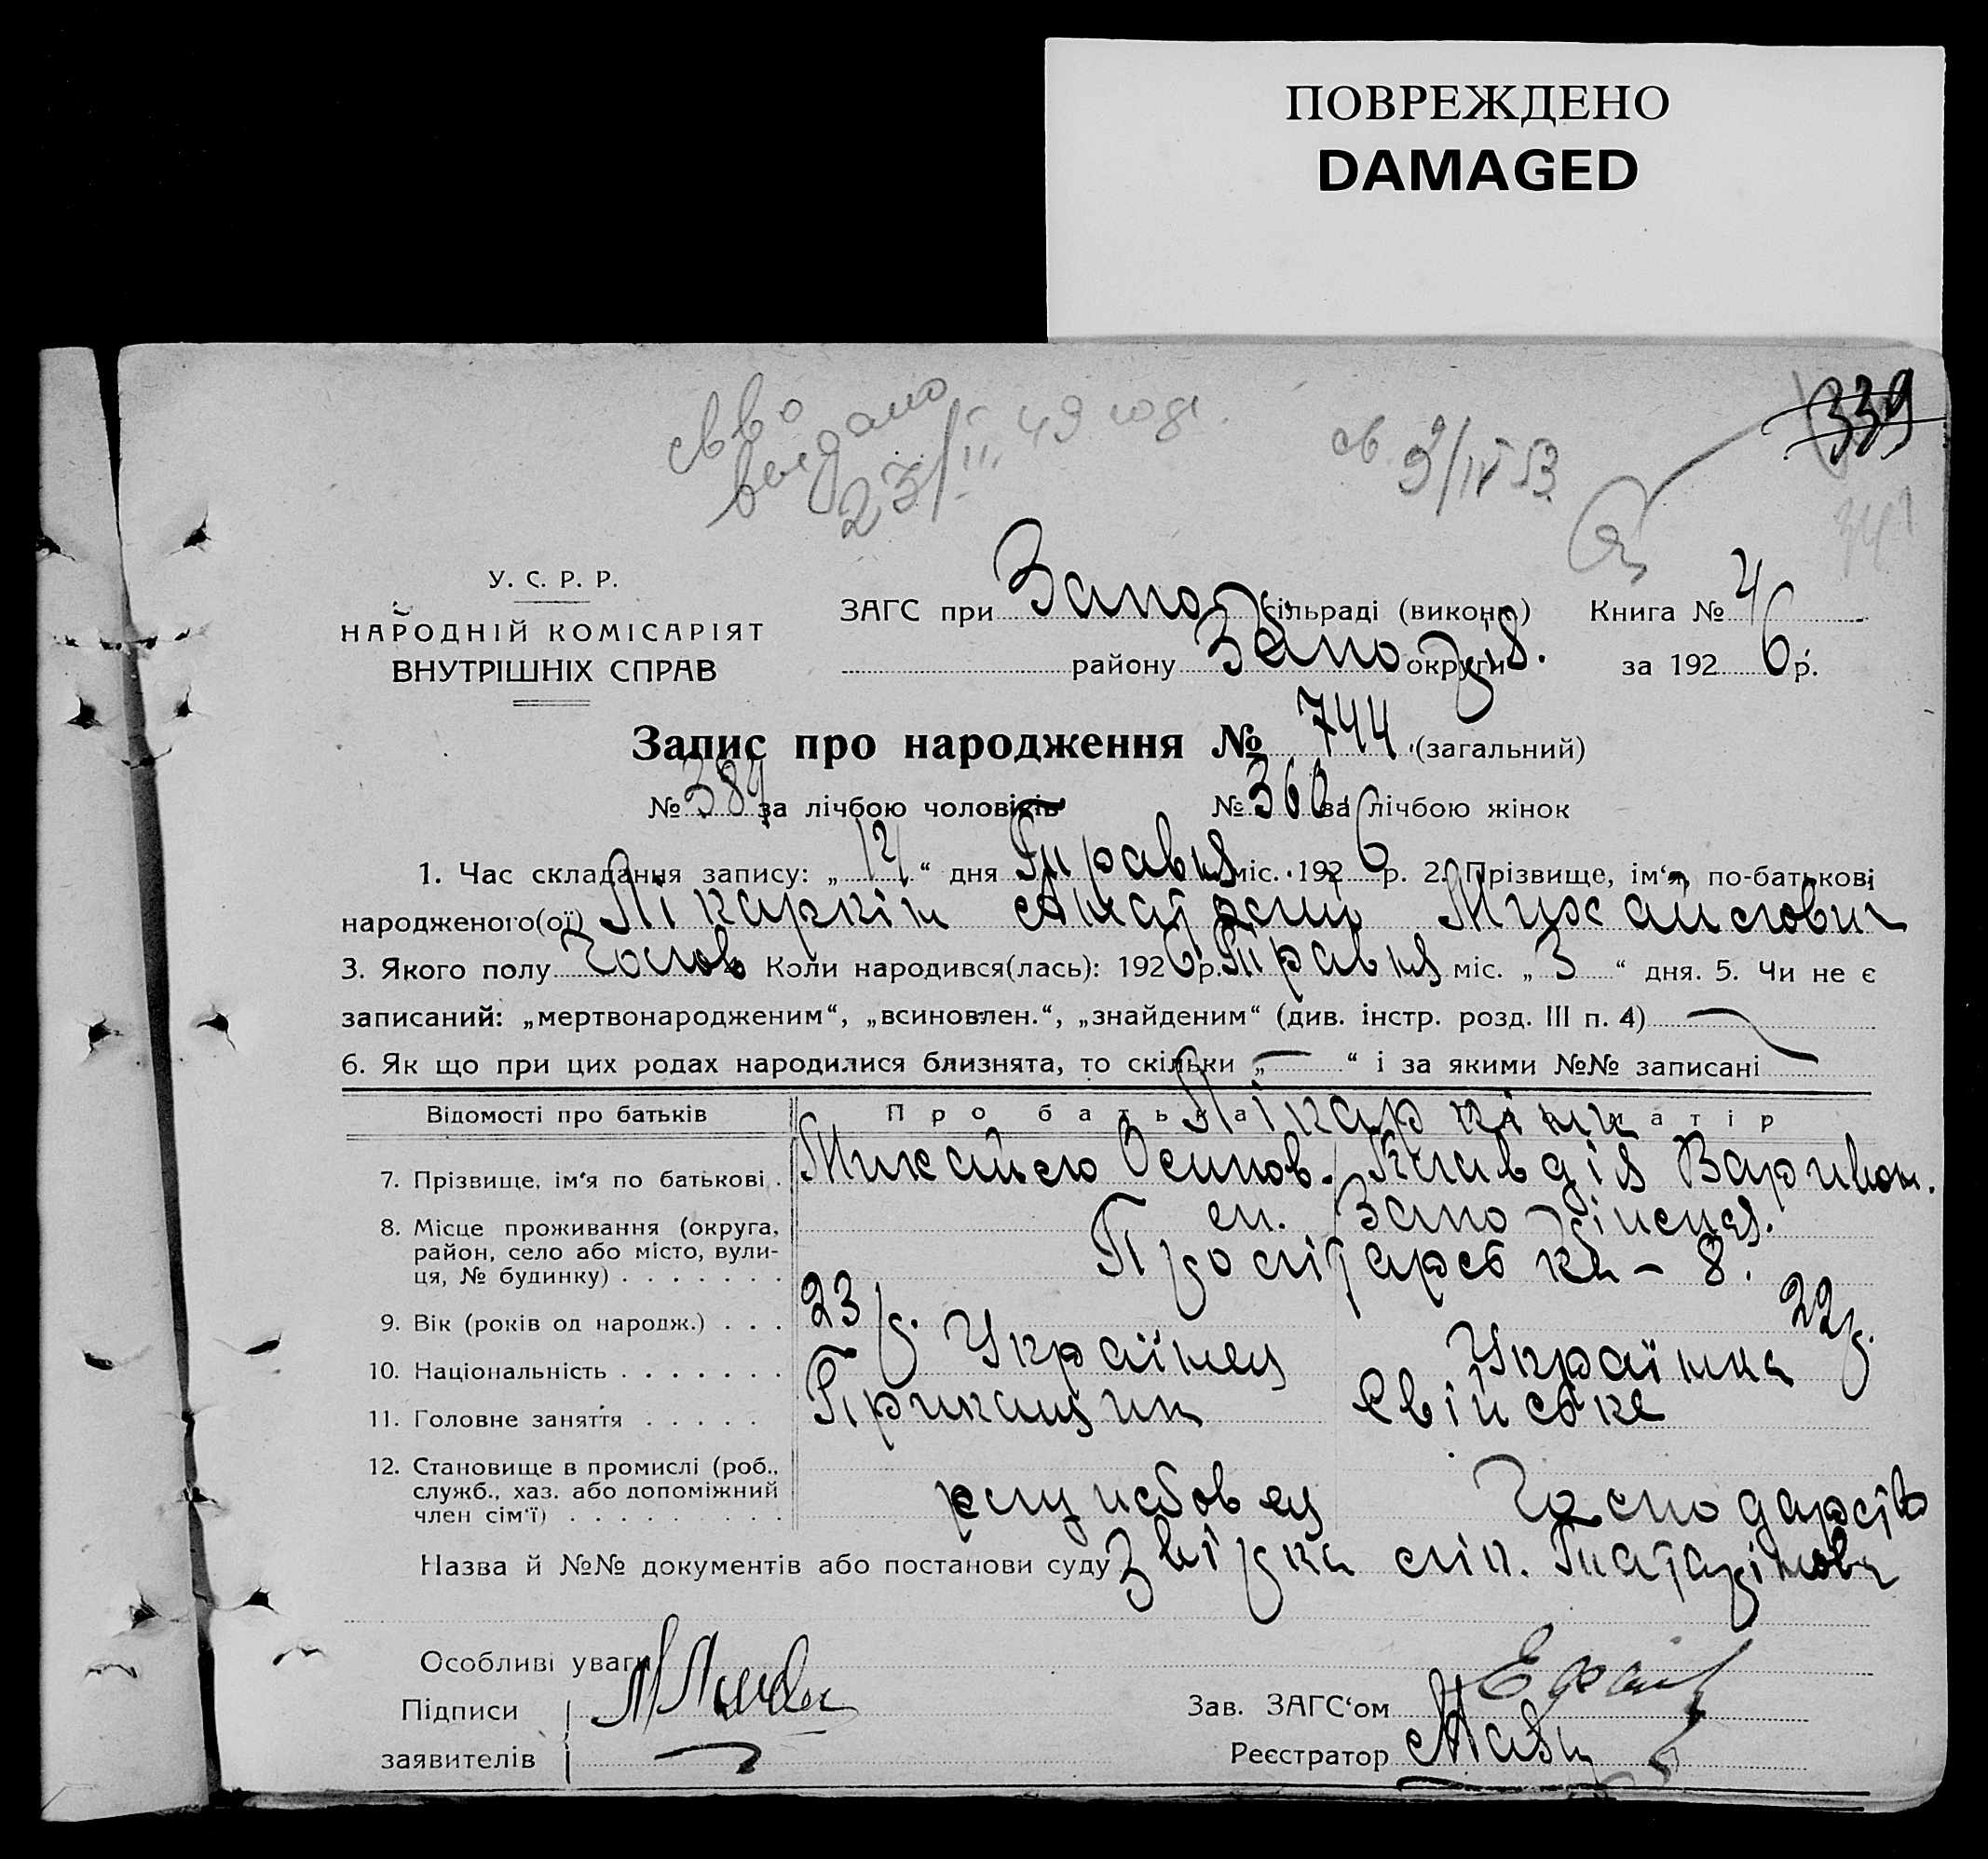 ПОВРЕЖДЕНО
DAMAGED
339
св-во
выдано
23/II 49 года.
св. 9/IV 53
341
У. С. Р. Р.
НАРОДНІЙ КОМІСАРІЯТ
ВНУТРІШНІХ СПРАВ
ЗАГС при Запор. сільраді (викон.) Книга № 4
району Запоріз. округи за 1926 р.
Запис про народження № 744 (загальний)
№ 384 за лічбою чоловіків № 360 за лічбою жінок
1. Час складання запису: „12“ дня Травня міс. 1926 р. 2. Прізвище, ім‘я, по-батькові
народженого(ої) Лікаркін Анатолій Михайлович
3. Якого полу Чолов Коли народився(лась): 1926 р. Травня міс. „3“ дня. 5. Чи не є
записаний: „мертвонародженим“, „всиновлен.“, „знайденим“ (див. інстр. розд. III п. 4)
6. Як що при цих родах народилися близнята, то скільки „—“ і за якими №№ записані
Відомості про батьків Про батька матір
Лікаркіни
7. Прізвище, ім‘я по батькові . Михайло Осипов. Клавдія
8. Місце проживання (округа, район, село або місто, вулиця, № будинку) . . . . . . . м. Запоріжжя.
Пролітарська – 8.
9. Вік (років од народж.) . . . 23 р. 22 р.
10. Національність . . . . . . . Українец Українка
11. Головне заняття . . . . . Прикащик Свійське
12. Становище в промислі (роб., служб., хаз. або допоміжний член сім‘ї) . . . . . . . . . службовец Господарств
Назва й №№ документів або постанови суду Звірка лік.
Особливі уваги
Підписи
заявителів
Зав. ЗАГС‘ом
Реєстратор